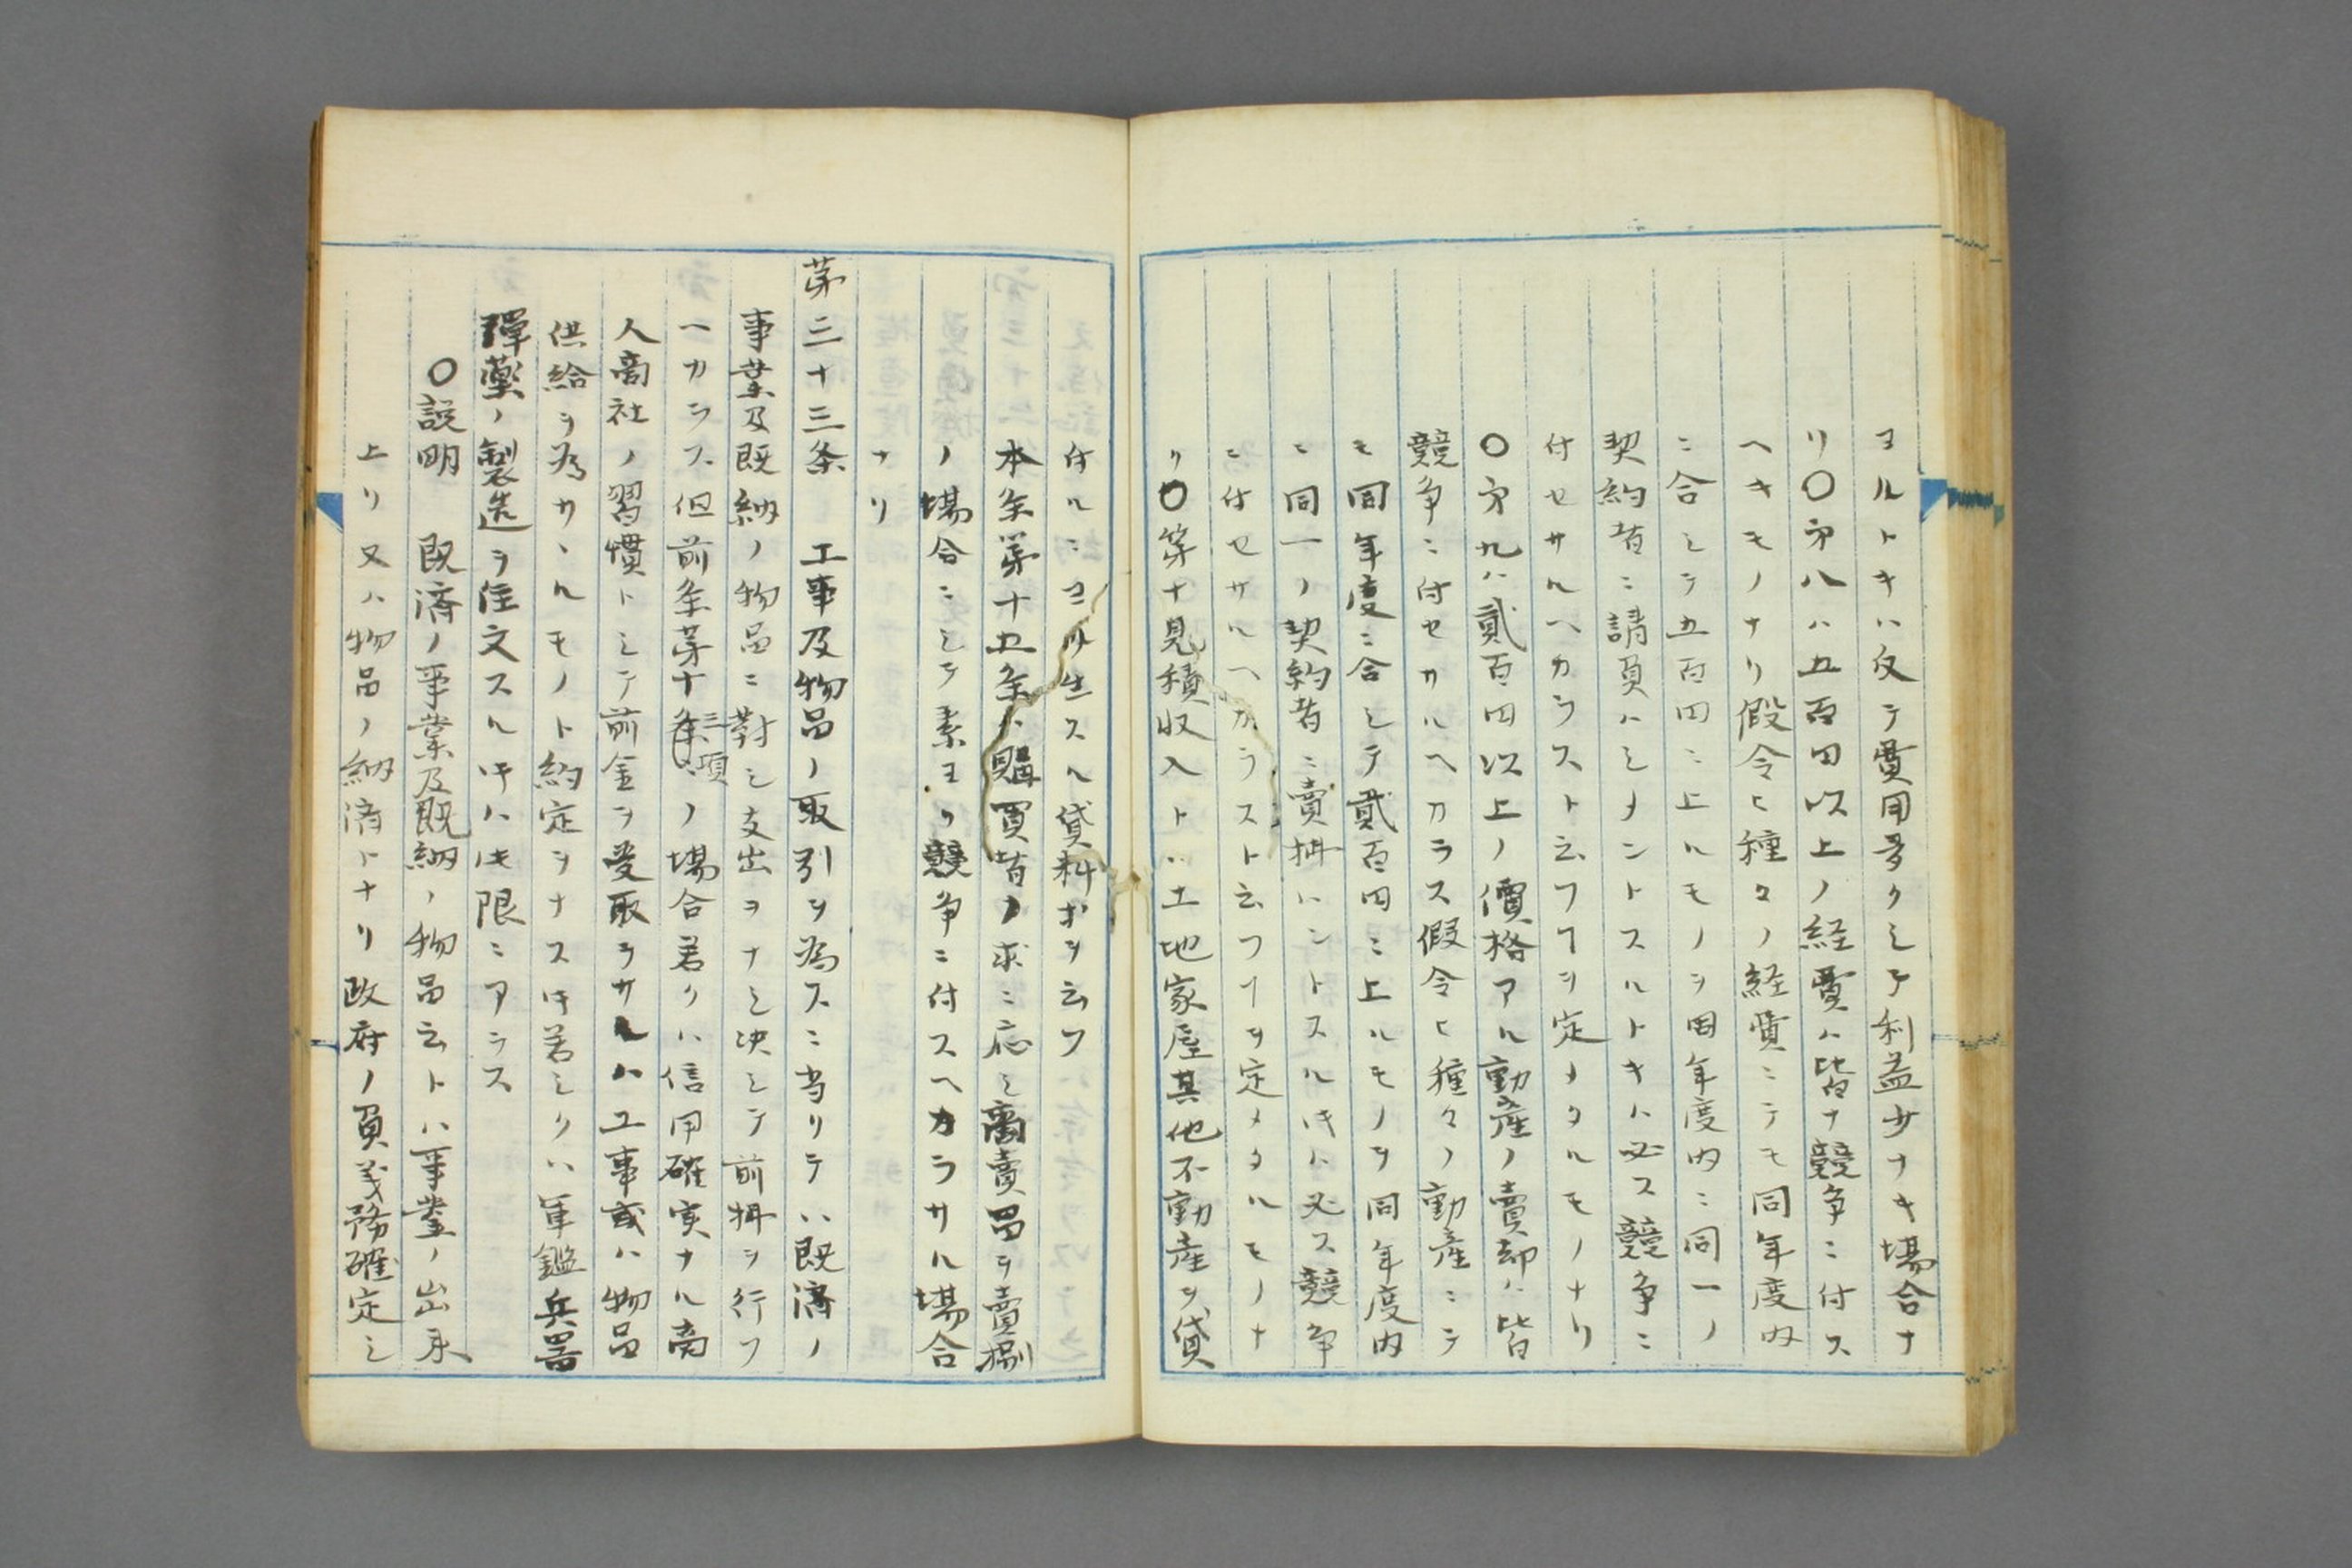 ヨルトキハ反テ費用多クシテ利益少ナキ場合ナ
リ〇第八ハ五百円以上ノ経費ハ皆ナ競争ニ付ス
ヘキモノナリ假令ヒ種々ノ経費ニテモ同年度内
ニ合シテ五百円ニ上ルモノヲ同年度内ニ同一ノ
契約者ニ請負ハシメントスルトキハ必ス競争ニ
付セサルヘカラスト云フヿヲ定メタルモノナリ
〇第九ハ貳百円以上ノ價格アル動産ノ賣却ハ皆
競争ニ付セサルヘカラス假令ヒ種々ノ動産ニテ
モ同年度ニ合シテ貳百円ニ上ルモノヲ同年度内
ニ同一ノ契約者ニ賣拂ハントスル时ハ必ス競争
ニ付セサルヘカラスト云フヿヲ定メタルモノナ
リ〇第十見積収入トハ土地家屋其他不動産ヲ貸
付ルニヨリ生スル貸料オヲ云フ
本条第十五条ハ購買者ノ求ニ応シ商賣品ヲ賣捌
ノ場合ニシテ素ヨリ競争ニ付スヘカラサル場合
ナリ
第三十三条 工事及物品ノ取引ヲ為スニ当リテハ既済ノ
事業及既納ノ物品ニ對シ支出ヲナシ決シテ前拂ヲ行フ
ヘカラス但前条第十三項ノ場合若クハ信用確実ナル商
人商社ノ習慣トシテ前金ヲ受取ラサルハ工事或ハ物品
供給ヲ為サヽルモノト約定ヲナス时若シクハ軍鑑兵器
彈薬ノ製造ヲ注文スル时ハ此限ニアラス
〇説明 既済ノ事業及既納ノ物品云トハ事業ノ出来
上リ又ハ物品ノ納済トナリ政府ノ負義務確定シ